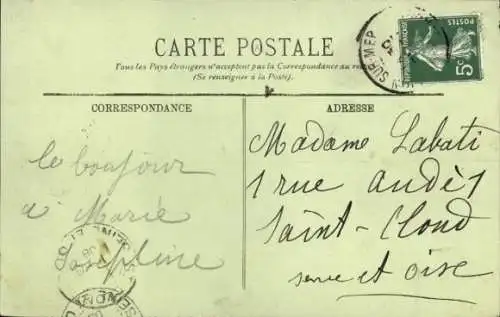 CARTE POSTALE
Tous les Pays étrangers n'acceptent pas la Correspondance au
(Se renseigner à la Poste).
CORRESPONDANCE
ADRESSE
POSTES
5c
SUR-MER
le bonjour
d' Marie
Josephine
Madame Labati
1 rue
Saint-Cloud
Seine et Oise
SEINE ET O